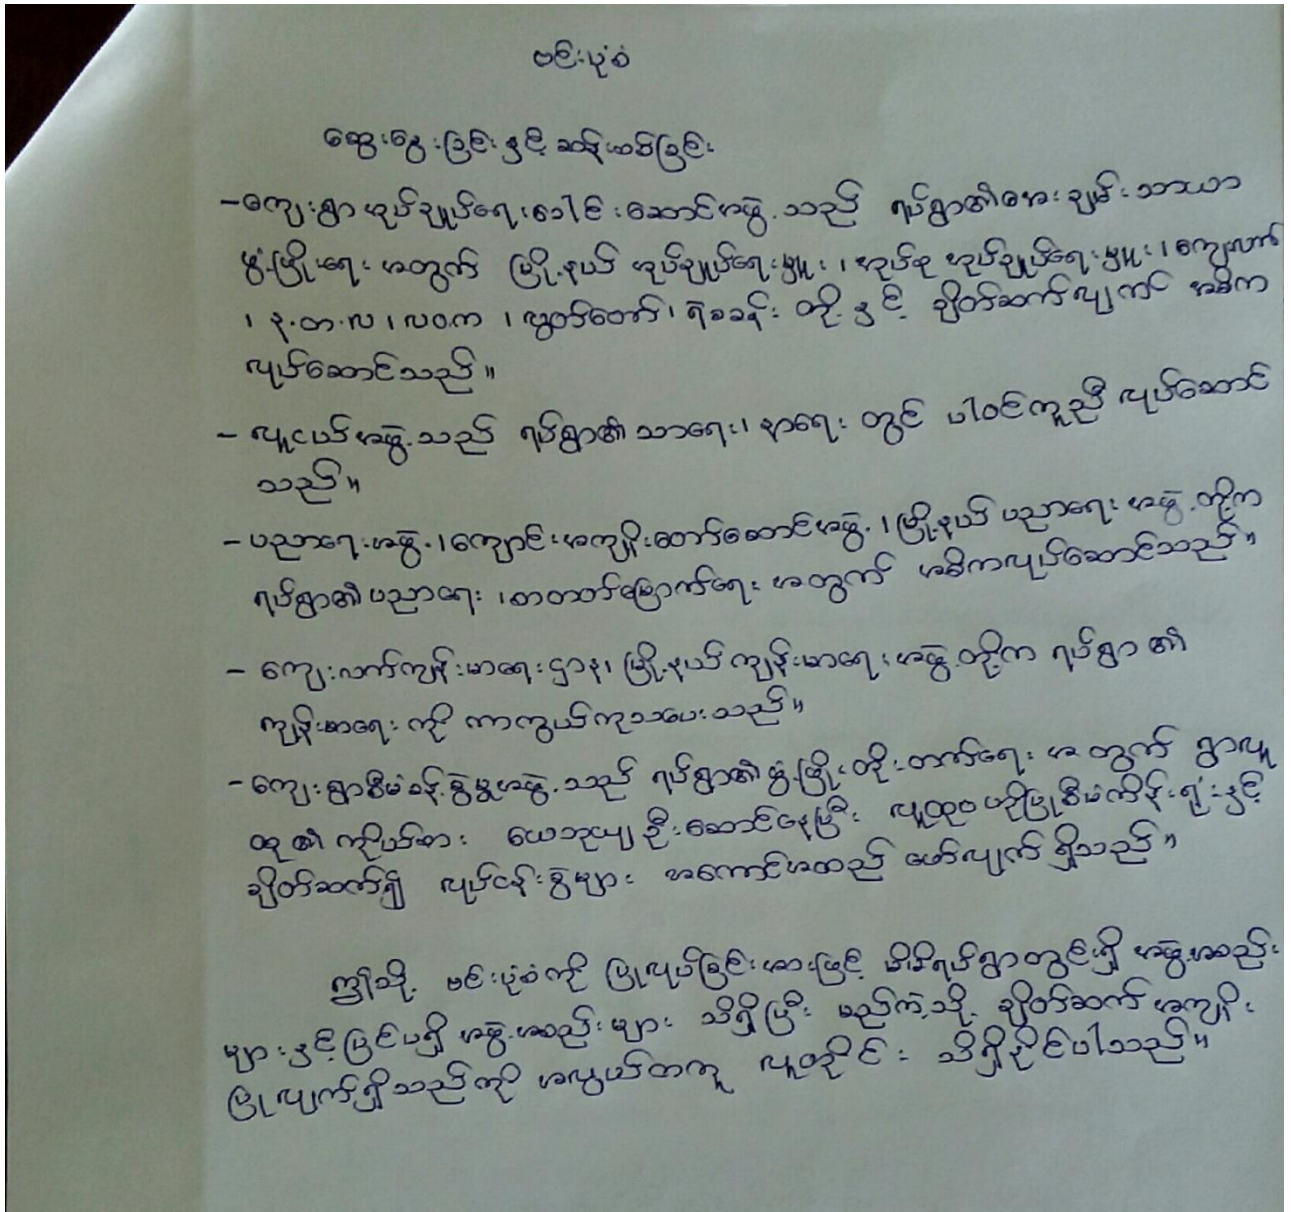 ဗင်းပုံစံ
ဆွေးနွေးခြင်းနှင့် ဆန်းစစ်ခြင်း
- ကျေးရွာအုပ်ချုပ်ရေးခေါင်းဆောင်အဖွဲ့သည် ရပ်ရွာ၏အေးချမ်းသာယာ
ဖွံ့ဖြိုးရေး အတွက် မြို့နယ် အုပ်ချုပ်ရေးမှူး ၊ အုပ်စု အုပ်ချုပ်ရေးမှူး ၊ ကျေးလက်
၊ န.တ.လ ၊ လဝက ၊ လွှတ်တော် ၊ ရဲစခန်း တို့နှင့် ချိတ်ဆက်လျက် အဓိက
လုပ်ဆောင်သည်။
- လူငယ်အဖွဲ့သည် ရပ်ရွာ၏ သာရေး၊ နာရေး တွင် ပါဝင်ကူညီ လုပ်ဆောင်
သည်။
- ပညာရေးအဖွဲ့ ၊ ကျောင်းအကျိုးတော်ဆောင်အဖွဲ့ ၊ မြို့နယ် ပညာရေး အဖွဲ့တို့က
ရပ်ရွာ၏ ပညာရေး ၊ တတတ်မြောက်ရေး အတွက် အဓိကလုပ်ဆောင်သည်။
- ကျေးလက်ကျန်းမာရေးဌာန၊ မြို့နယ်ကျန်းမာရေးအဖွဲ့တို့က ရပ်ရွာ ၏
ကျန်းမာရေး ကို ကာကွယ်ကုသပေးသည်။
- ကျေးရွာစီမံခန့်ခွဲမှုအဖွဲ့သည် ရပ်ရွာ၏ဖွံ့ဖြိုးတိုးတက်ရေး အတွက် ရွာလူ
ထု၏ ကိုယ်စား ယေဘုယျ ဦးဆောင်နေပြီး လူထုဗဟိုပြုစီမံကိန်းရုံးနှင့်
ချိတ်ဆက်၍ လုပ်ငန်းခွဲများ အကောင်အထည် ဖော်လျက် ရှိသည်။
ဤသို့ ဗင်းပုံစံကို ပြုလုပ်ခြင်းအားဖြင့် မိမိရပ်ရွာတွင်းရှိ အဖွဲ့အစည်း
များနှင့် ပြင်ပရှိ အဖွဲ့အစည်းများ သိရှိပြီး မည်ကဲ့သို့ ချိတ်ဆက် အကျိုး
ပြုလျက်ရှိသည်ကို အလွယ်တကူ လူတိုင်း သိရှိနိုင်ပါသည်။